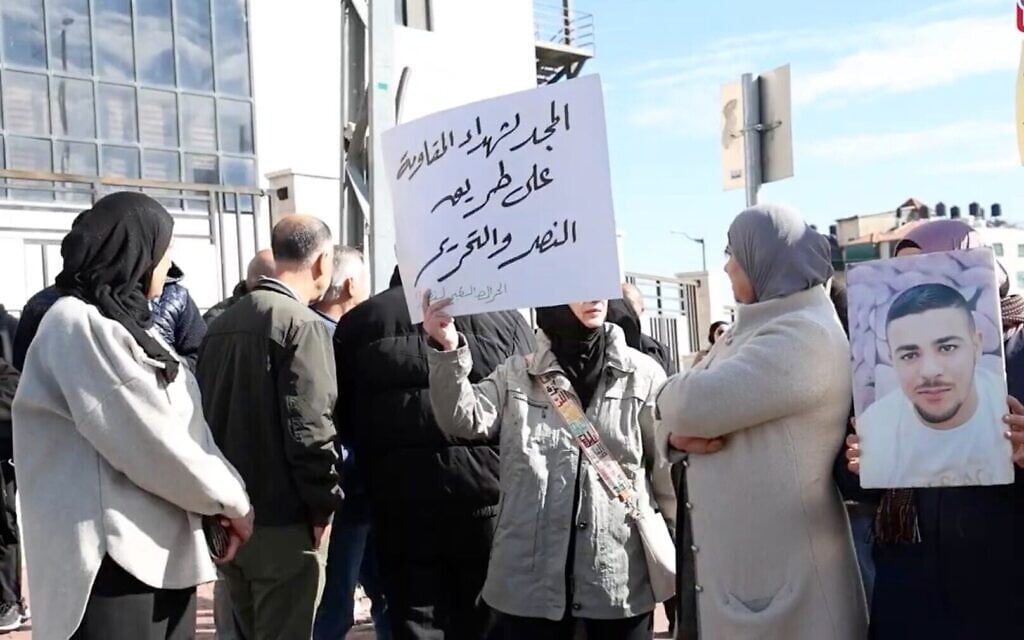 المجد لشهداء المقاومة
على طريق
النصر والتحرير
الحراك